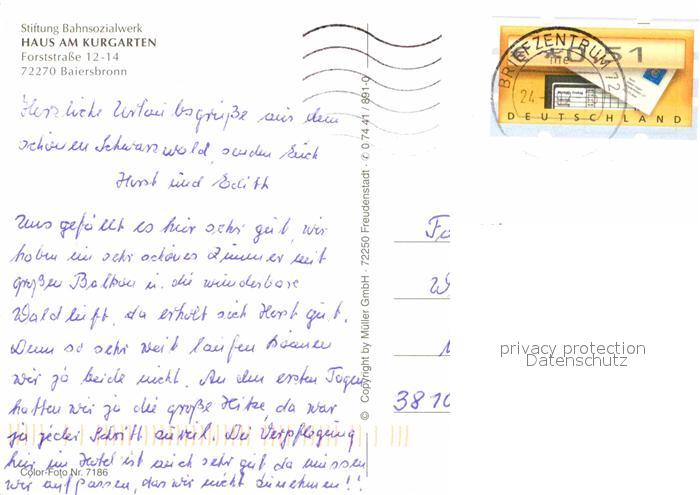 Stiftung Bahnsozialwerk
HAUS AM KURGARTEN
Forststraße 12-14
72270 Baiersbronn
Herzliche Urlaubsgrüße aus dem
schönen Schwarzwald, senden Euch
Horst und Edith
Uns gefällt es hier sehr gut, wir
haben ein sehr schönes Zimmer mit
großen Balkon u. die wunderbare
Waldluft, da erholt sich Horst gut.
Denn so sehr weit laufen können
wir ja beide nicht. An den ersten Tagen
hatten wir ja die große Hitze, da war
ja jeder Schritt zuviel. Die Verpflegung
hier im Hotel ist auch sehr gut da müssen
wir aufpassen, das wir nicht zunehmen!!
Color-Foto Nr. 7186
© Copyright by Müller GmbH · 72250 Freudenstadt · ✆ 0 74 41 / 891-0
BRIEFZENTRUM 72
24
051
DEUTSCHLAND
privacy protection
Datenschutz